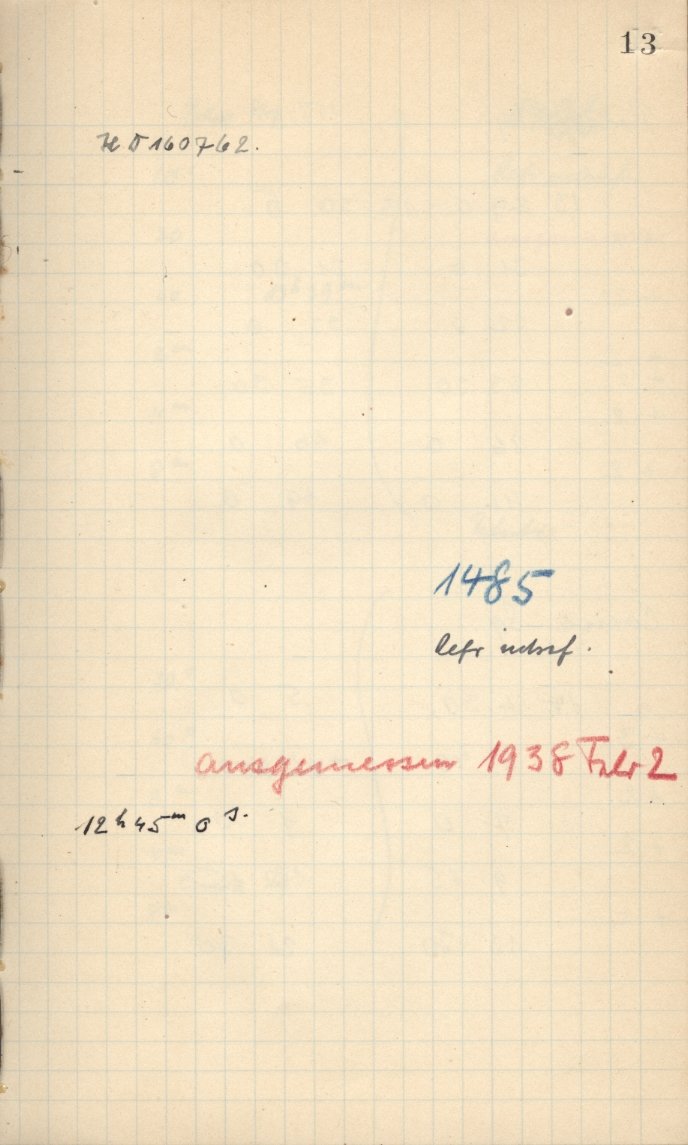 13
HD 160762.
1485
sehr unscharf.
ausgemessen 1938 Febr 2
12h 45m 0s.